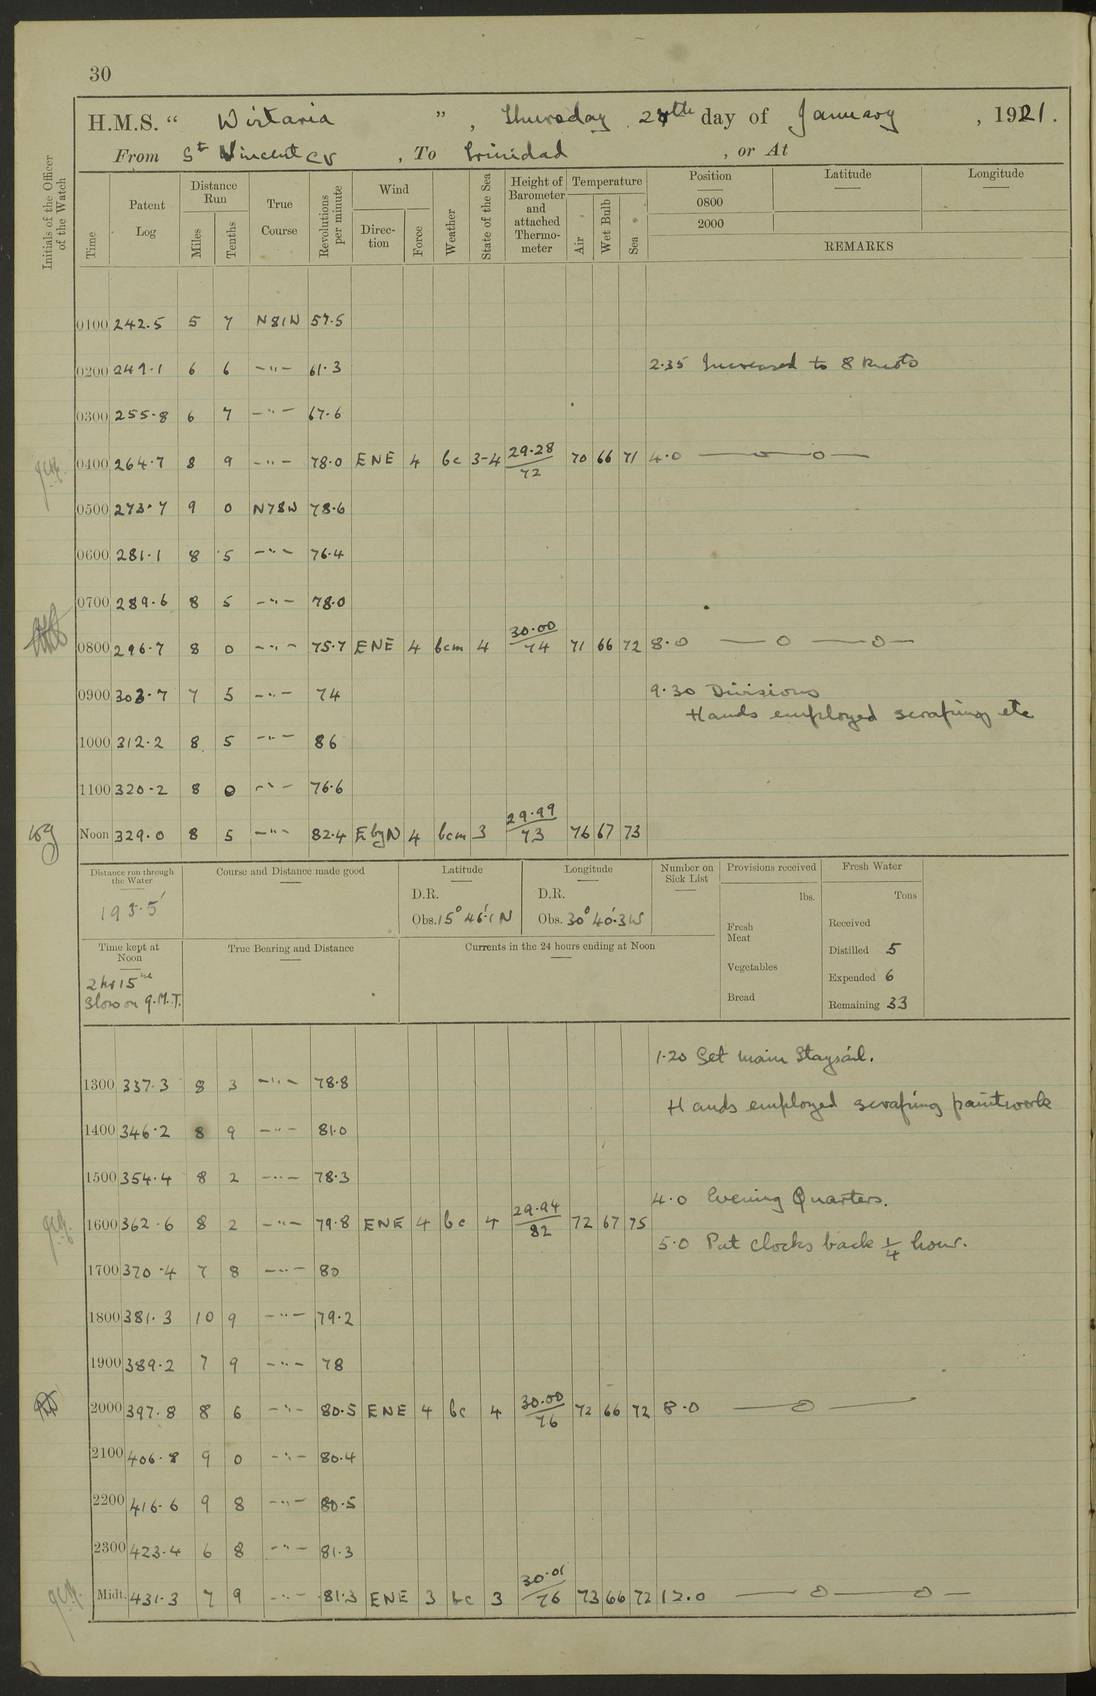 30
H.M.S. “ Wistaria ” , Thursday 27th day of January , 1921.
From St Vincent CV , To Trinidad , or At
Initials of the Officer of the Watch
Time
Patent Log
Distance Run
Miles
Tenths
True Course
Revolutions per minute
Wind
Direction
Force
Weather
State of the Sea
Height of Barometer and attached Thermometer
Temperature
Air
Wet Bulb
Sea
Position
0800
2000
Latitude
Longitude
REMARKS
0100 242.5 5 7 N81W 57.5
0200 249.1 6 6 -"- 61.3 2.35 Increased to 8 knots
0300 255.8 6 7 -"- 67.6
0400 264.7 8 9 -"- 78.0 ENE 4 bc 3-4 29.28/72 70 66 71 4.0 — o —
0500 273.7 9 0 N78W 78.6
0600 281.1 8 5 -"- 76.4
0700 289.6 8 5 -"- 78.0
0800 296.7 8 0 -"- 75.7 ENE 4 bcm 4 30.00/74 71 66 72 8.0 — o — o —
0900 303.7 7 5 -"- 74 9.30 Divisions
Hands employed scraping etc
1000 312.2 8 5 -"- 86
1100 320.2 8 0 -"- 76.6
Noon 329.0 8 5 -"- 82.4 EbyN 4 bcm 3 29.99/73 76 67 73
Distance run through the Water
193.5'
Course and Distance made good
Latitude
D.R.
Obs. 15° 46'.1 N
Longitude
D.R.
Obs. 30° 40'.3 W
Number on Sick List
Provisions received
lbs.
Fresh Meat
Vegetables
Bread
Fresh Water
Tons
Received
Distilled 5
Expended 6
Remaining 33
Time kept at Noon
2 hrs 15 m
Slow on G.M.T.
True Bearing and Distance
Currents in the 24 hours ending at Noon
1.20 Set main Staysail.
1300 337.3 8 3 -"- 78.8
Hands employed scraping paintwork
1400 346.2 8 9 -"- 81.0
1500 354.4 8 2 -"- 78.3
4.0 Evening Quarters.
1600 362.6 8 2 -"- 79.8 ENE 4 bc 4 29.94/82 72 67 75
5.0 Put clocks back 1/4 hour.
1700 370.4 7 8 -"- 80
1800 381.3 10 9 -"- 79.2
1900 389.2 7 9 -"- 78
2000 397.8 8 6 -"- 80.5 ENE 4 bc 4 30.00/76 72 66 72 8.0 — o —
2100 406.8 9 0 -"- 80.4
2200 416.6 9 8 -"- 80.5
2300 423.4 6 8 -"- 81.3
Midt. 431.3 7 9 -"- 81.3 ENE 3 bc 3 30.01/76 73 66 72 12.0 — o — o —